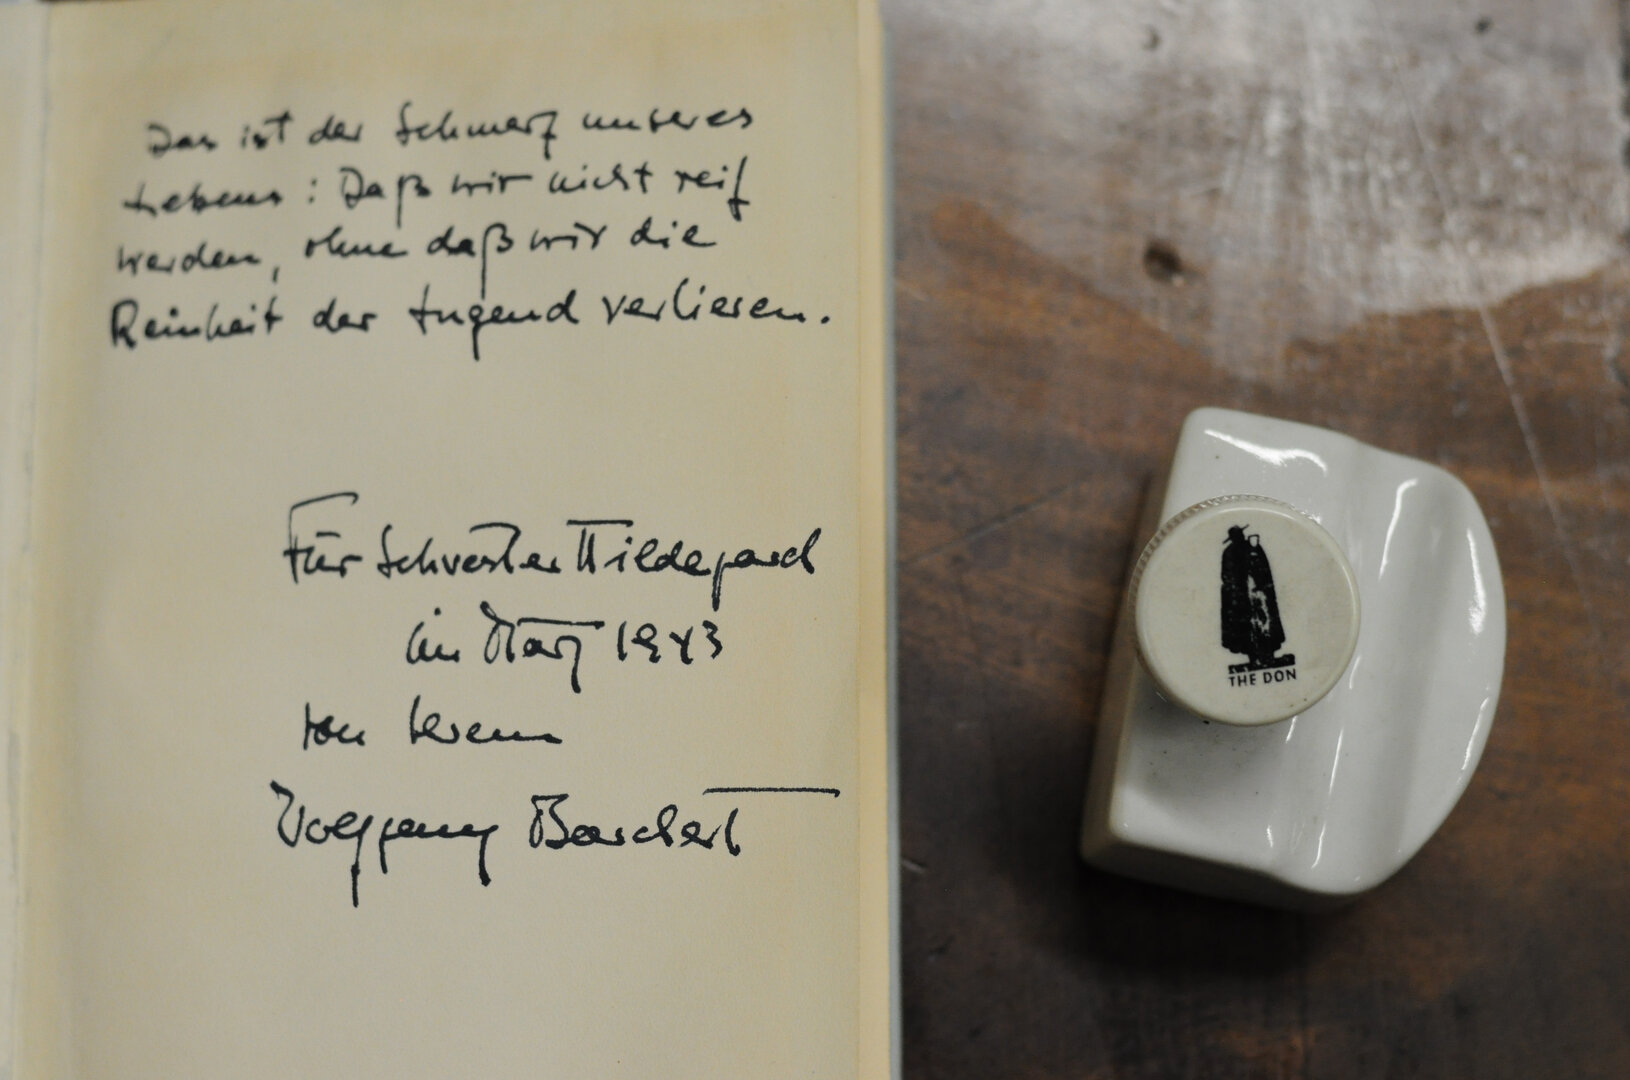 Das ist der Schmerz unseres
Lebens : Daß wir nicht reif
werden, ohne daß wir die
Reinheit der Jugend verlieren.
Für Schwester Hildegard
im März 1943
von Ihrem
Wolfgang Borchert
THE DON